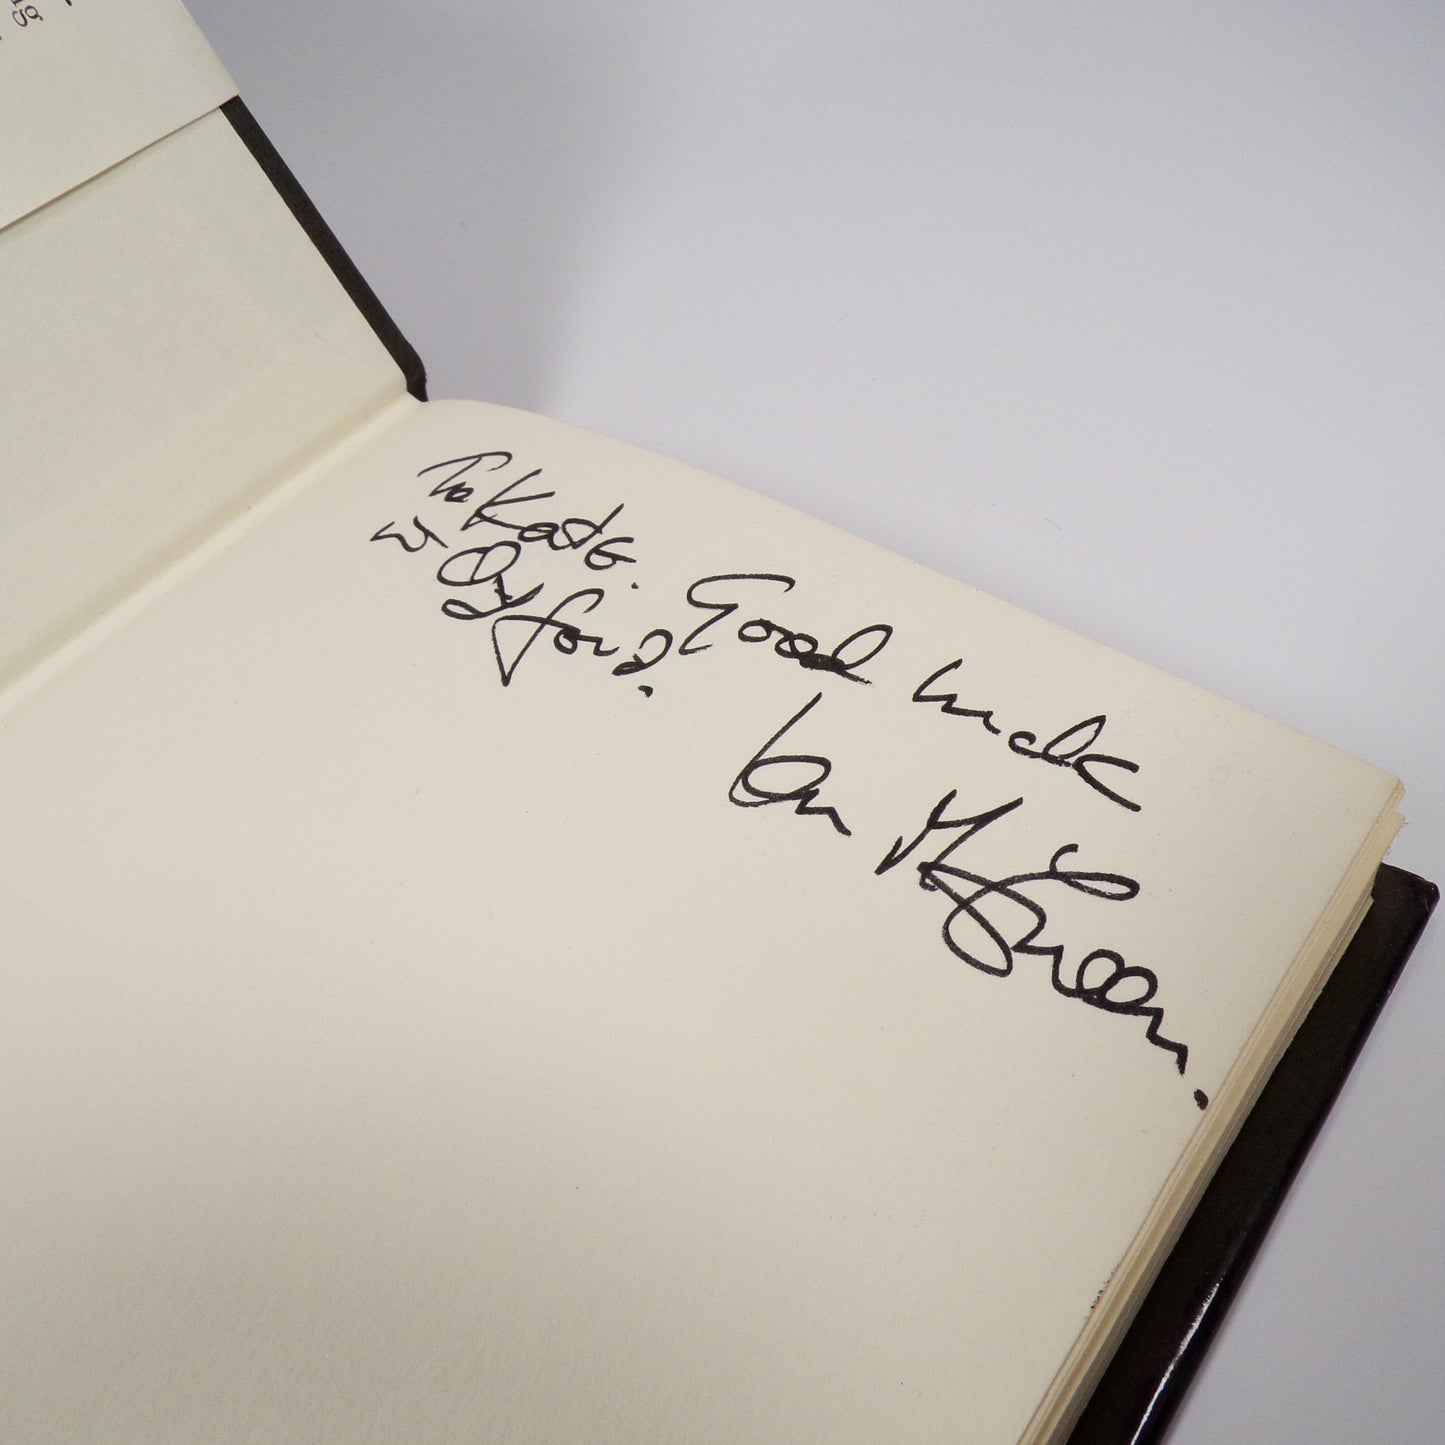 ng
To Kate.
@ Oxford. Good luck
Ian McEwan.